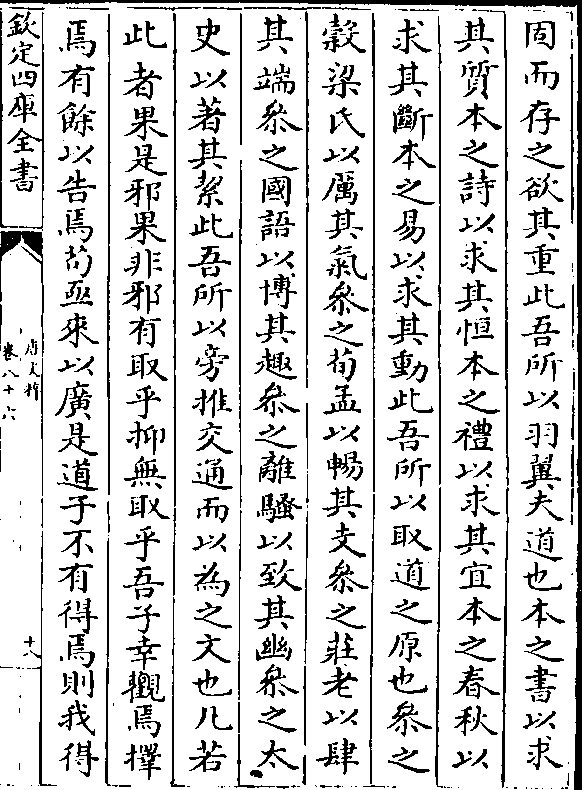 固而存之欲其重此吾所以羽翼夫道也本之書以求
其質本之詩以求其恒本之禮以求其宜本之春秋以
求其斷本之易以求其動此吾所以取道之原也叅之
穀梁氏以厲其氣叅之荀孟以暢其支叅之莊老以肆
其端叅之國語以博其趣叅之離騷以致其幽叅之太
史以著其絜此吾所以旁推交通而以為之文也凡若
此者果是邪果非邪有取乎抑無取乎吾子幸觀焉擇
焉有餘以告焉茍亟來以廣是道子不有得焉則我得
欽定四庫全書
唐文粹
卷八十六
十八